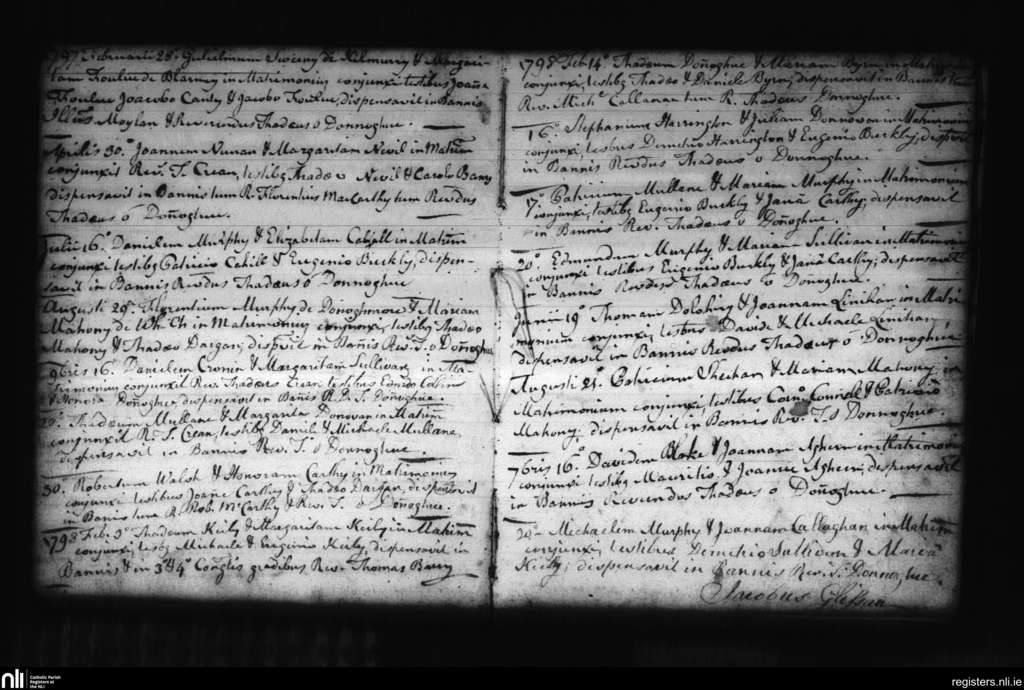 1797. Februarii 28. Gulielmum Sweeny de Kilmurry & Margari-
tam Foulue de Blarney in Matrimonium conjunxi testibus Joañe
Foulue Joacobo Canty & Jacobo Foulue, dispensavit in Bannis
Illmus Moylan & Reverendus Thadæus o Donnoghue.
Aprilis 30. Joannem Nunan & Margaritam Nevil in Matrim
conjunxit Revs. T. Crean, testibg Thadæo Nevil & Carolo Barry
dispensavit in Bannis tum R. Florentius MacCarthy tum Revdus
Thadæus o Doñoghue.
Julii 16. Danielem Murphy & Elizabetam Cahill in Matrim
conjunxi testibg Patricio Cahill & Eugenio Buckly, dispen-
savit in Bannis Revdus Thadæus o Donnoghue
Augusti 29. Florentium Murphy de Donoghmore & Mariam
Mahony de Wh. Ch in Matrimonium conjunxi, testibg Thadæo
Mahony & Thadæo Dargan; dispvit in Bañis Revs. T. o Doñoghue
9bris 16. Danielem Cronin & Margaritam Sullivan in Ma-
trimonium conjunxit Rev. Thadæus Crean testibus Edmdo Collins
& Honora Doñoghue, dispensavit in Bañis R. D. T. Doñoghue.
Thadæum Mullane & Margarita Donovan in Matrim
conjunxit Rs. T. Crean, testibg Daniele & Michaele Mullane,
dispensavit in Bannis Revs. T. o Donnoghue.
30. Robertum Walsh & Honoram Carthy in Matrimonium
conjunxi testibus Joane Carthy & Thadæo Dargan, dispensavit
in Banis tum R. Rob. McCarthy & Revs. T. o Doñoghue.
1798 Feb. 3o Thadæum Kiely & Margaritam Kiely in Matrim
conjunxi, tesbg Michaele & Eugenio Kiely, dispensavit in
Bannis & in 3o & 4o Conglis gradibus Revs. Thomas Barry
1798 Feb 14o Thadæum Doñoghue & Mariam Byrn in Matrim
conjunxi, testibg Thadæo & Daniele Byrn, dispensavit in Bannis tum
Rev. Michl Callanan tum R. Thadæus Donnoghue.
16o Stephanum Harrington & Juliam Donnovan in Matrimonium
conjunxi, tesbus Demetrio Harrington & Eugenio Buckly; dispvit
in Bannis Revdus Thadæus o Donnoghue.
17o Patricium Mullane & Mariam Murphy in Matrimonium
conjunxi, testibg Eugenio Buckly & Janâ Carthy; dispensavit
in Bannis Rev. Thadæus o Donoghue.
20o Edmundum Murphy & Mariam Sullivan in Matrimonio
conjunxi, testibus Eugenio Buckly & Janâ Carthy; dispensavit
in Bannis Revdus Thadæus o Donoghue.
Junii 19o Thomam Dolohiry & Joannam Linihan in Matri
monium conjunxi, tesbus Davide & Michaele Linihan,
dispensavit in Bannis Revdus Thadæus o Donnoghue
Augusti 21o Patricium Sheehan & Mariam Mahony in
Matrimonium conjunxi, testibus Connell & Patricio
Mahony; dispensavit in Bannis Revs. T. o Donnoghue.
7bris 16o Davidem Blake & Joannam Ahern in Matrimonium
conjunxi testibg Mauritio & Joanne Ahern; dispensavit
in Bannis Reverendus Thadæus o Doñoghue.
20o Michaelem Murphy & Joannam Callaghan in Matrim
conjunxi, testibus Demetrio Sullivan & Mariâ
Kiely; dispensavit in Bannis Revs. T. Donnoghue.
Jacobus
nli
Catholic Parish
Registers at
the NLI
registers.nli.ie